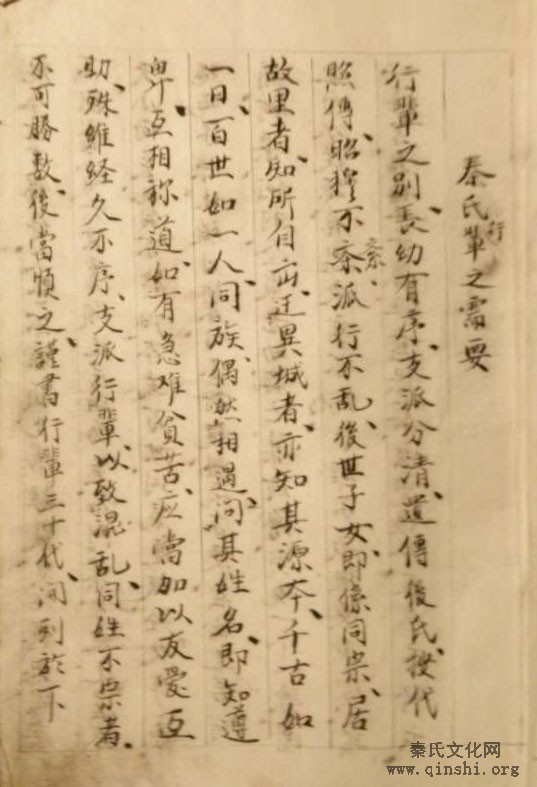 秦氏行輩之需要
行輩之别、長幼有序、支派分清、遺傳後氏、按代
照傳、昭穆不紊、派行不乱、後世子女、即係同宗、居
故里者、知所自出、迁異城者、亦知其源本、千古如
一日、百世如一人、同族、偶然相遇、问其姓名、即知遵
卑、互相称道、如有急难貧苦、应當加以友愛互
助、殊維经久不序、支派行輩、以致混乱、同姓不宗者、
不可勝数、後當慎之、謹書行輩三十代、间列於下
秦氏文化网
www.qinshi.org